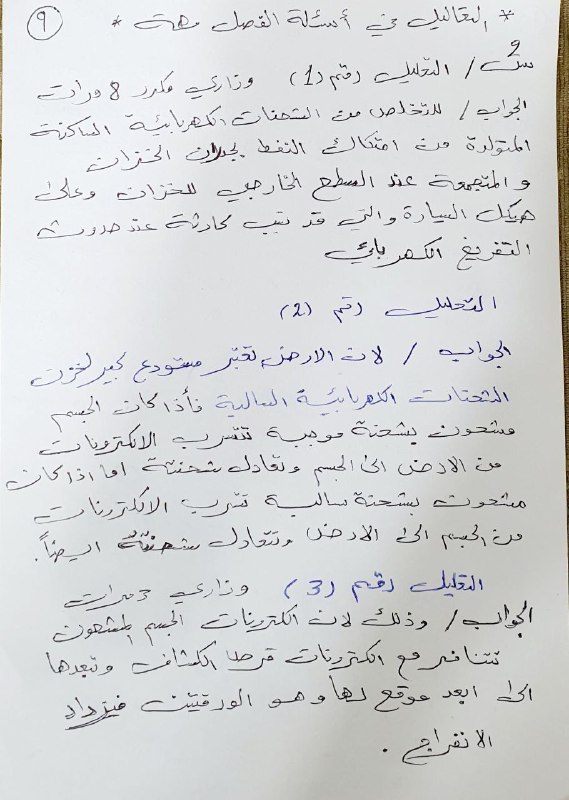 ٩
* التعاليل في أسئلة الفصل مهمة *
س٢/ التعليل رقم (1) وزاري مكرر 8 مرات
الجواب/ للتخلص من الشحنات الكهربائية الساكنة
المتولدة من احتكاك النفط بجدران الخزان
والمتجمعة عند السطح الخارجي للخزان وعلى
هيكل السيارة والتي قد تسبب كارثة عند حدوث
التفريغ الكهربائي
التعليل رقم (2)
الجواب / لان الارض تعتبر مستودع كبير لخزن
الشحنات الكهربائية السالبة فأذا كان الجسم
مشحون بشحنة موجبة تتسرب الالكترونات
من الارض الى الجسم وتعادل شحنتة اما اذا كان
مشحون بشحنة سالبة تتسرب الالكترونات
من الجسم الى الارض وتتعادل شحنتة ايضاً.
التعليل رقم (3) وزاري 3 مرات
الجواب/ وذلك لان الكترونات الجسم المشحون
تتنافر مع الكترونات قرص الكشاف وتبعدها
الى ابعد موقع لها وهو الورقتين فيزداد
الانفراج .